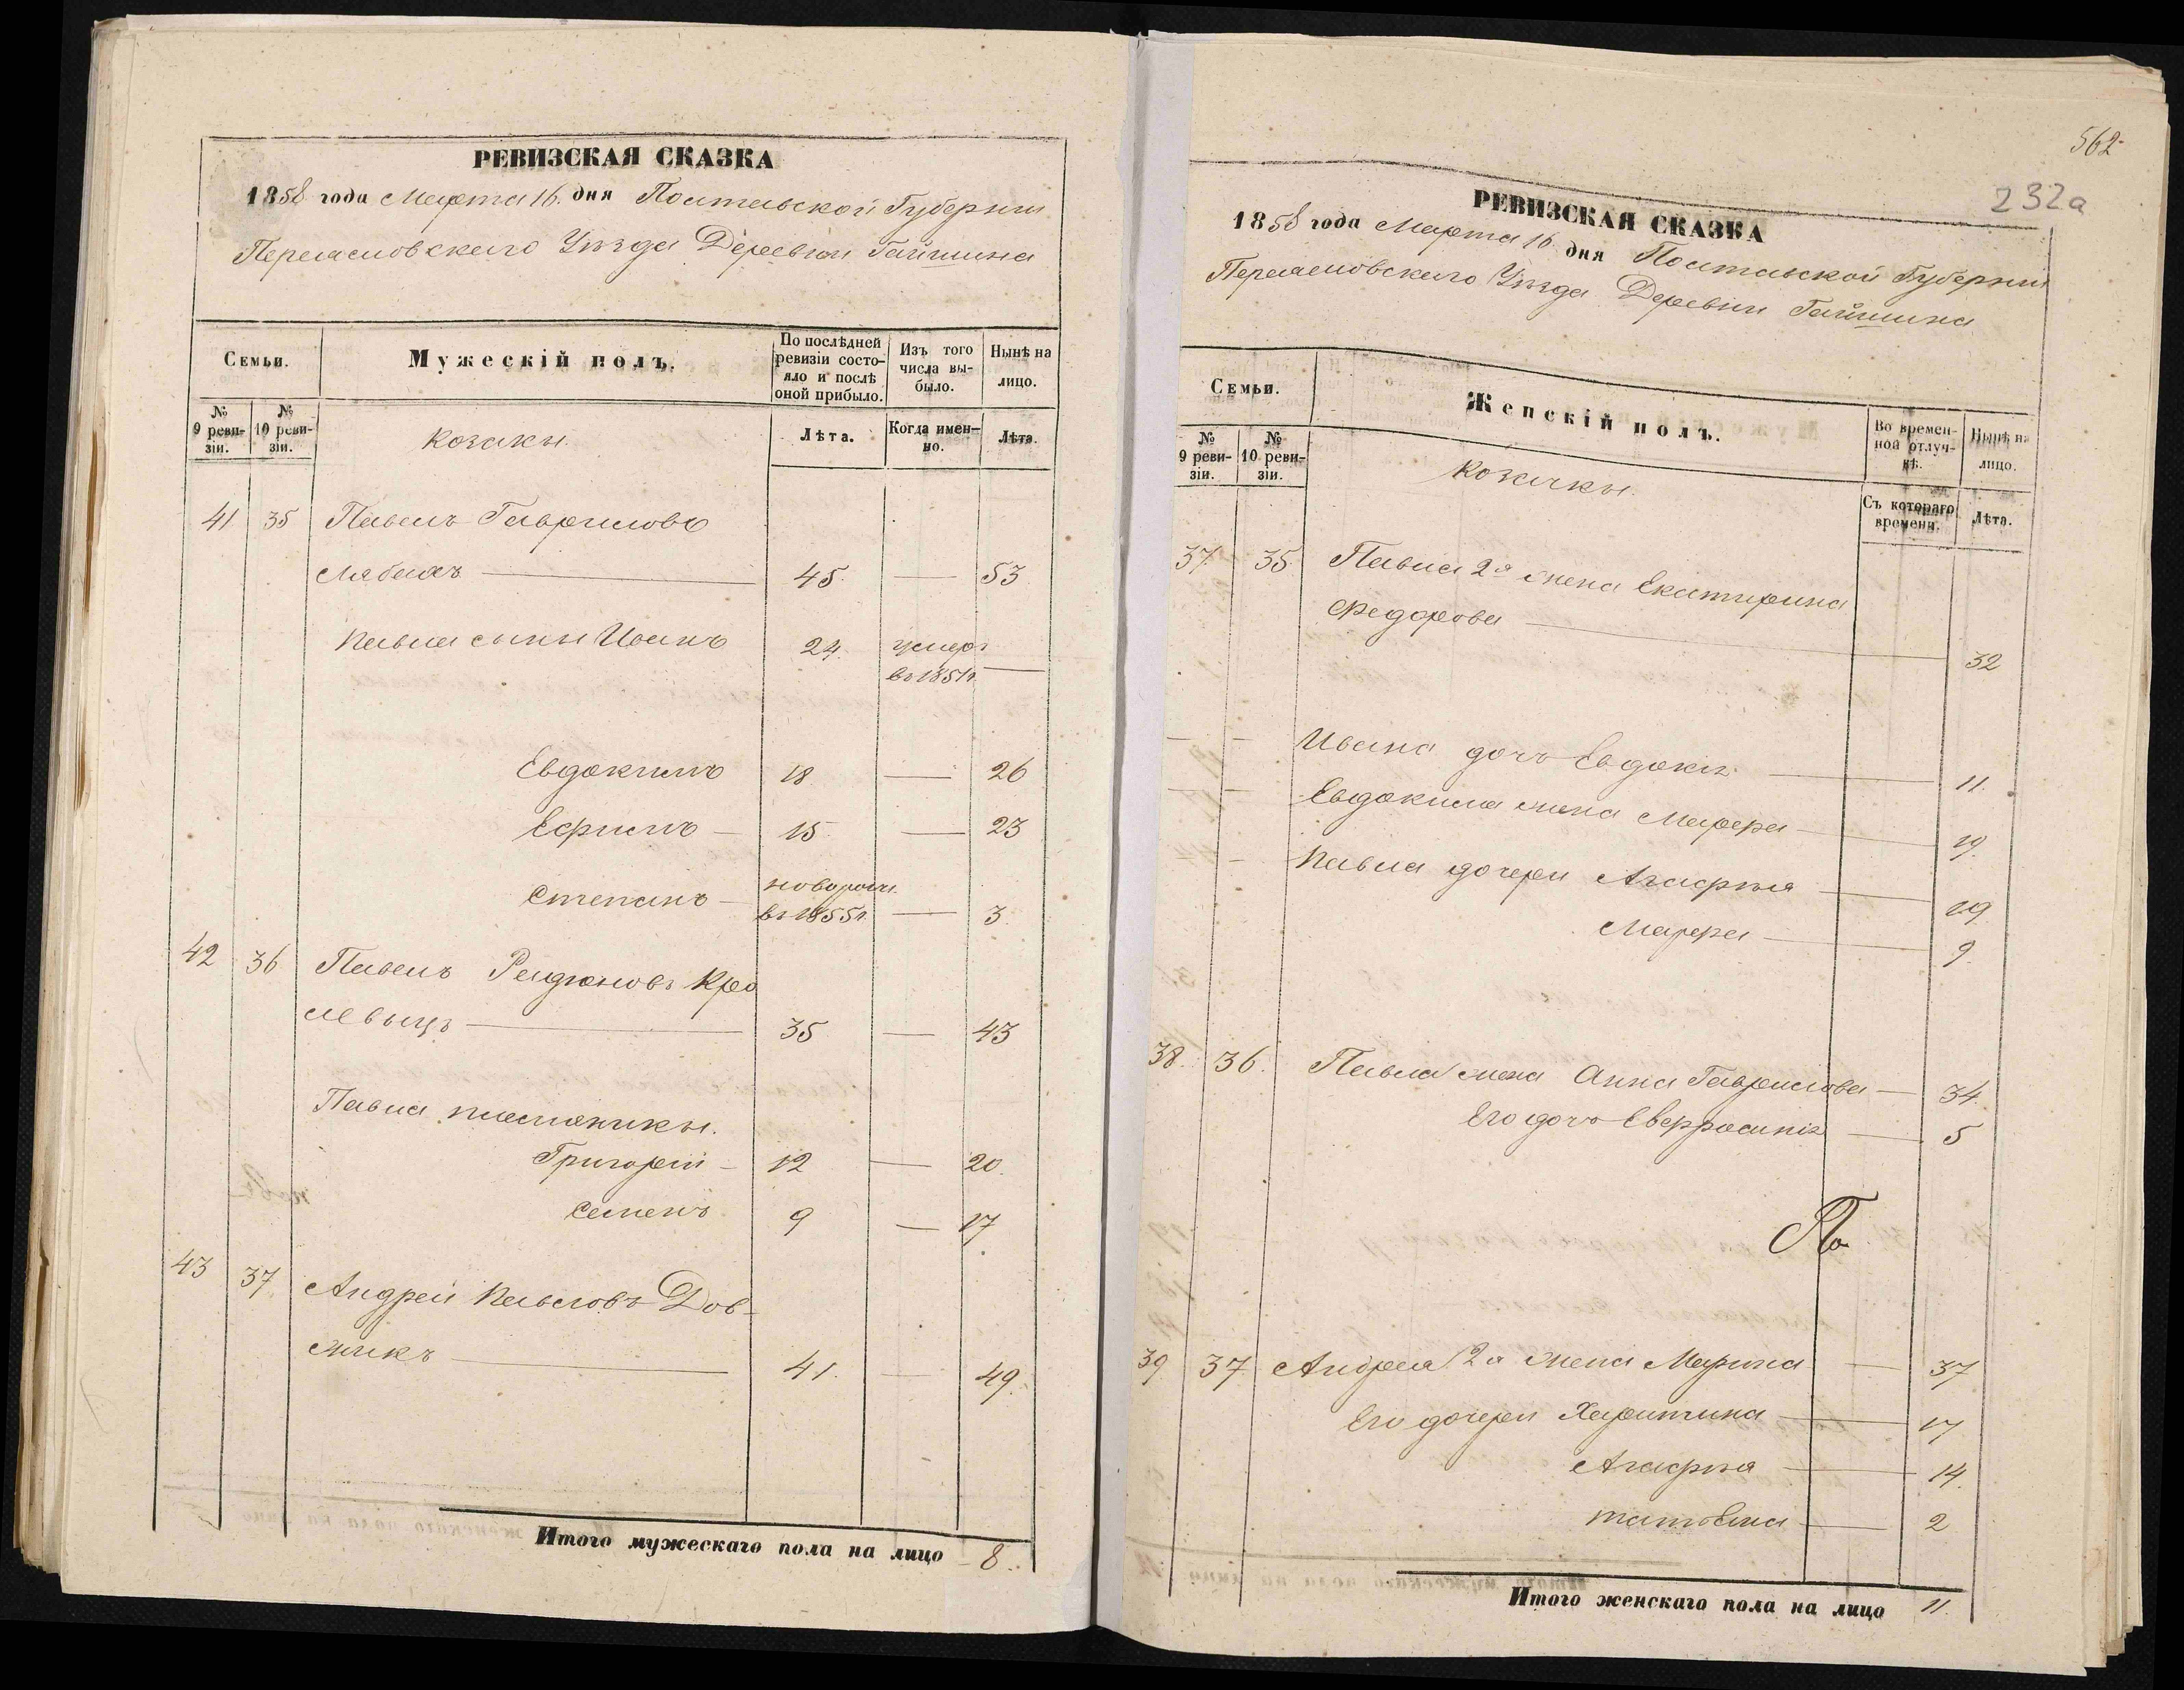 РЕВИЗСКАЯ СКАЗКА
1858 года Марта 16 дня Полтавской Губернии
Переяславскаго Уѣзда Деревни Гайшина
Семьи.
Мужескій полъ.
По послѣдней ревизіи состояло и послѣ оной прибыло.
Изъ того числа выбыло.
Нынѣ на лицо.
№ 9 ревизіи.
№ 10 ревизіи.
Козаки.
Лѣта.
Когда именно.
Лѣта.
41 35 Павелъ Гавриловъ
45. — 53
Павла сыны Иванъ 24. умеръ
въ 1851г. —
Евдокимъ 18 — 26
Ефимъ — 15 — 23
Степанъ — новорожд.
въ 1855г. — 3
42 36 Павелъ Родионовъ Кро
левыцъ — 35 — 43
Павла племяники.
Григорій — 12 — 20.
Семенъ 9 — 17
43 37 Андрей Павловъ Дов-
жикъ — 41. — 49.
Итого мужескаго пола на лицо 8.
562
232а
РЕВИЗСКАЯ СКАЗКА
1858 года Марта 16 дня Полтавской Губерніи
Переяславскаго Уѣзда Деревни Гайшина
Семьи.
Женскій полъ.
Во временной отлучкѣ.
Нынѣ на лицо.
№ 9 ревизіи.
№ 10 ревизіи.
Козачки.
Съ котораго времени.
Лѣта.
37. 35. Павла 2я жена Екатирина
Федорова — 32
— — Ивана дочь Евдокія — 11.
— — Евдокима жена Марфа — 19.
— Павла дочери Агафія — 19.
Марфа — 9.
38. 36. Павла жена Анна Гаврилова — 34.
Его дочь Евфросинія — 5
39 37 Андрея 2я жена Марина — 37
Его дочери Харитина — 17
Агафія — 14.
Татьяна — 2
Итого женскаго пола на лицо 11.